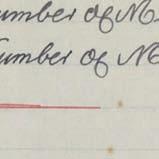 Number of M
Number of M